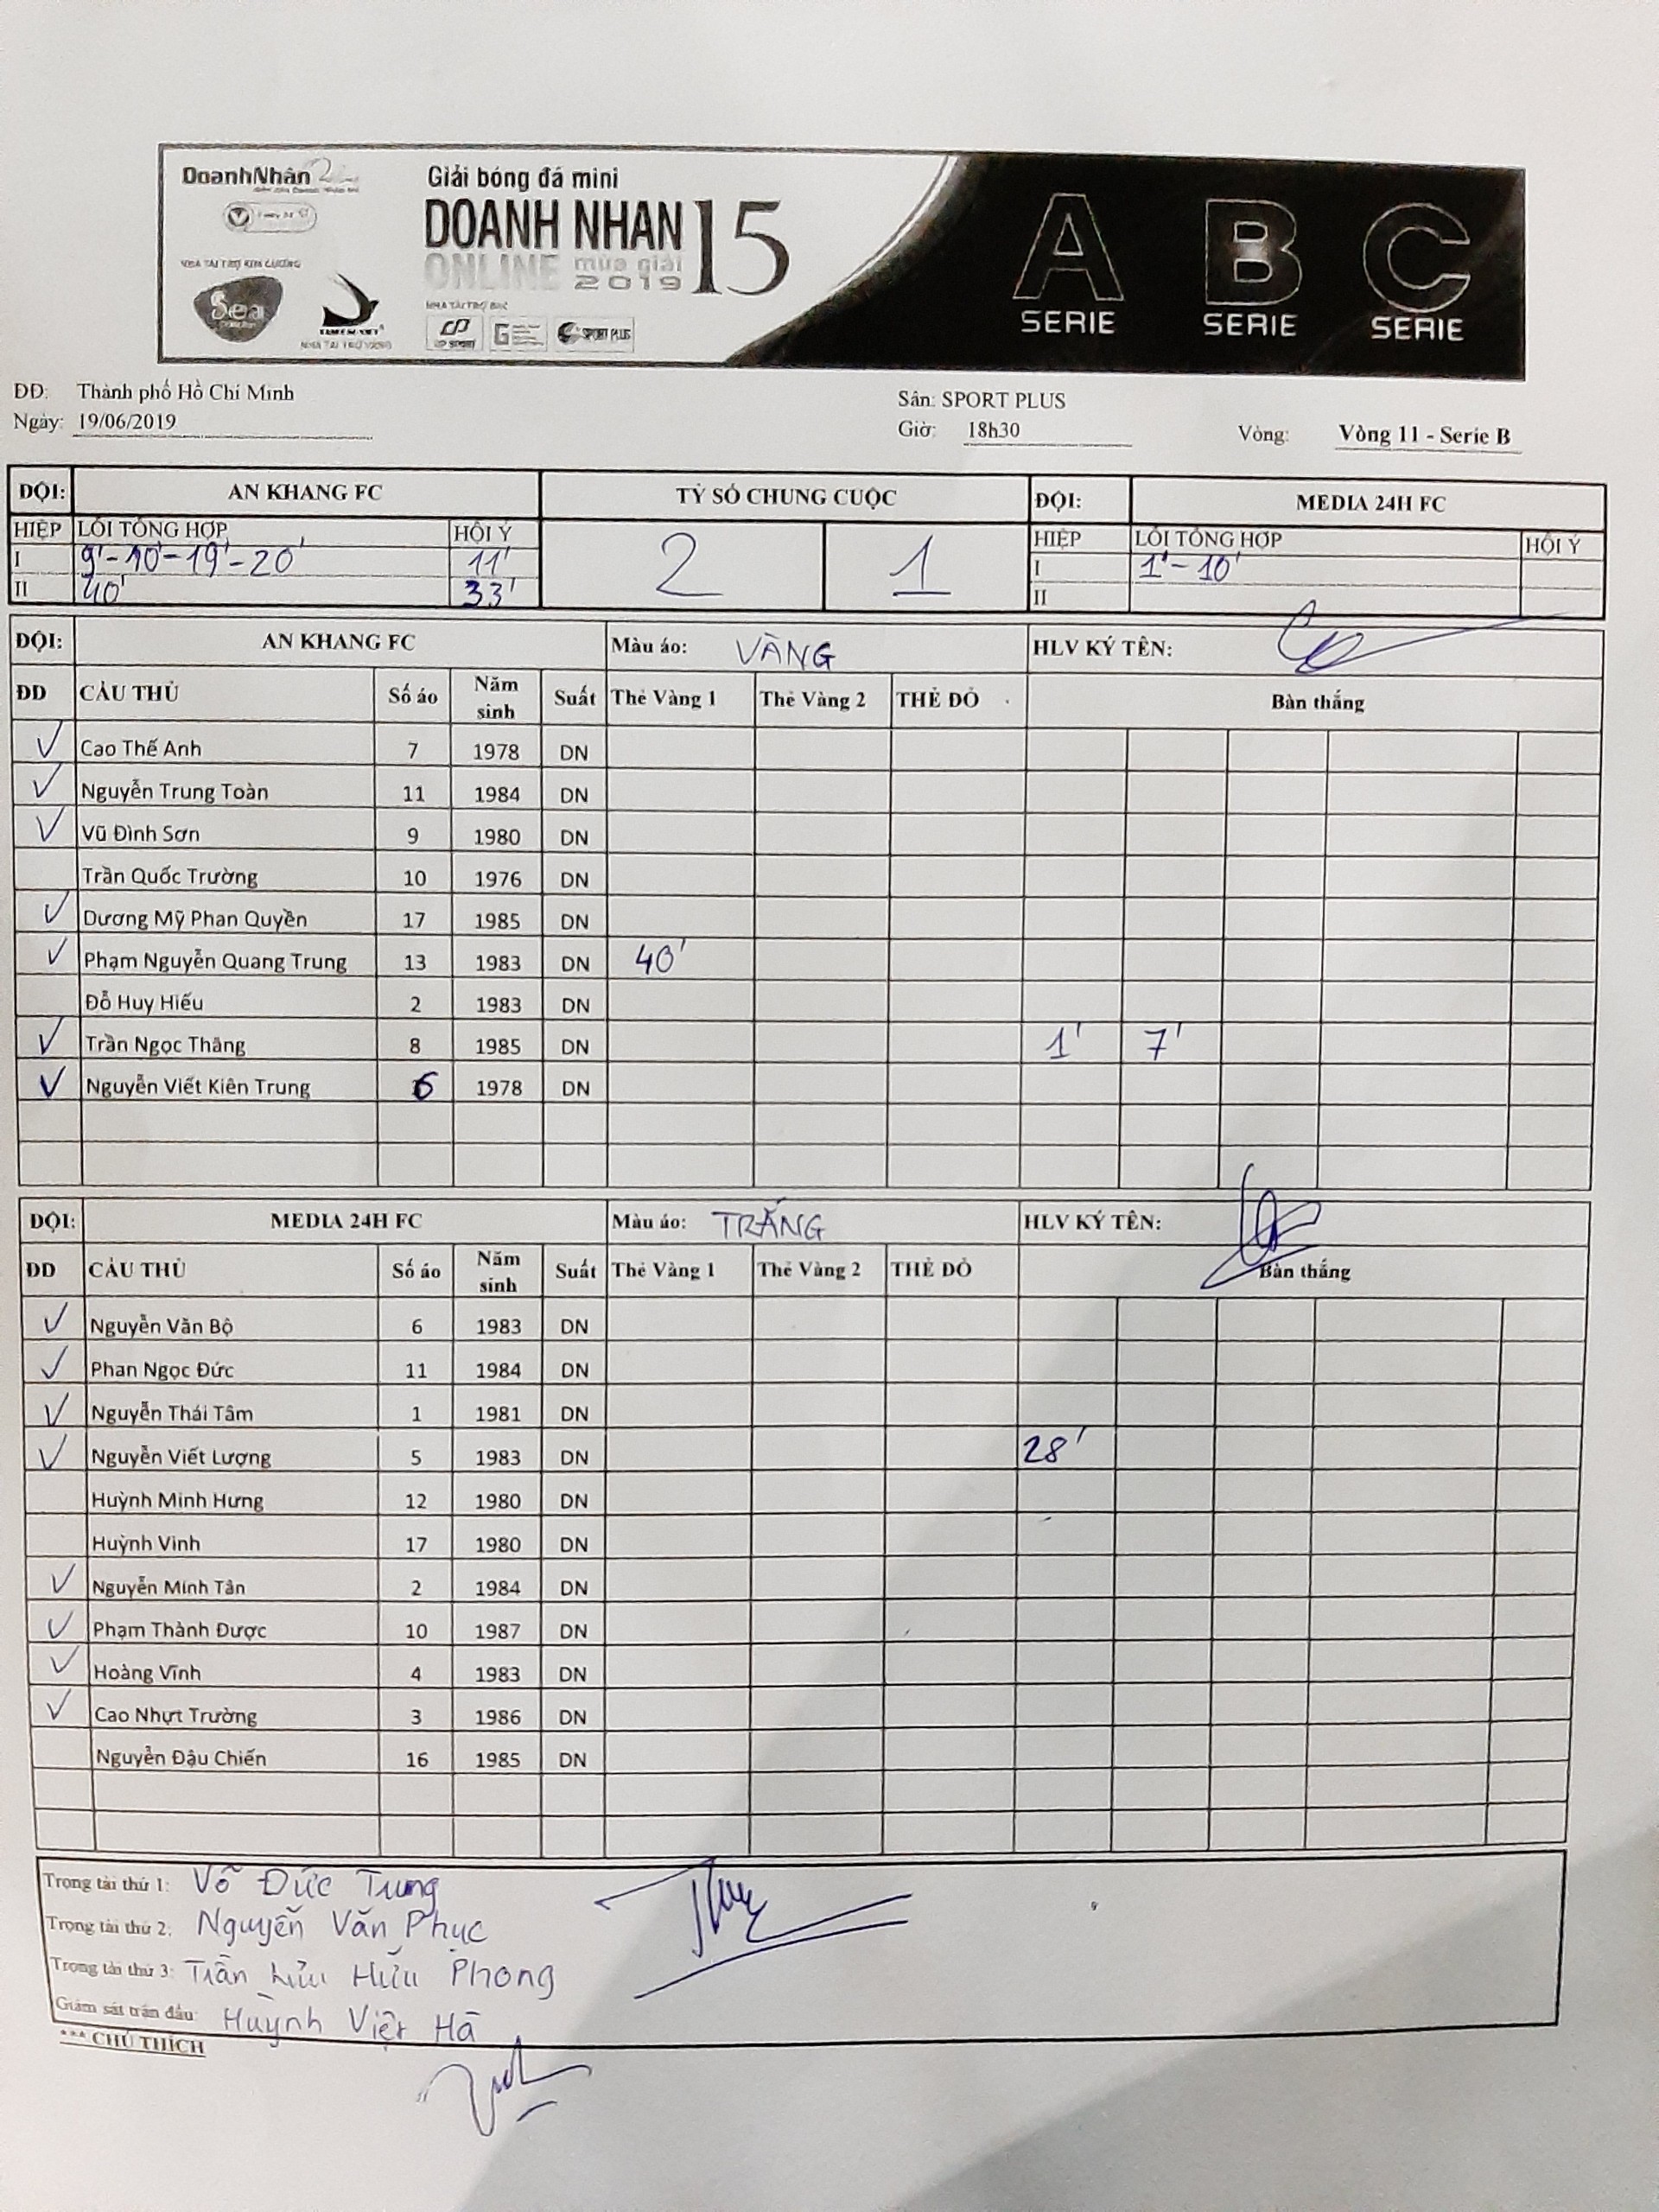 DoanhNhân
Giải bóng đá mini
DOANH NHAN 15
ONLINE mùa giải
2019
NHÀ TÀI TRỢ KIM CƯƠNG
Sea
NHÀ TÀI TRỢ VÀNG
NHÀ TÀI TRỢ BẠC
SPORT PLUS
A SERIE B SERIE C SERIE
ĐĐ: Thành phố Hồ Chí Minh Sân: SPORT PLUS
Ngày: 19/06/2019 Giờ: 18h30 Vòng: Vòng 11 - Serie B
ĐỘI: AN KHANG FC TỶ SỐ CHUNG CUỘC ĐỘI: MEDIA 24H FC
HIỆP LỖI TỔNG HỢP HỘI Ý 2 1 HIỆP LỖI TỔNG HỢP HỘI Ý
I 9'-10'-19'-20' 11' I 1'-10'
II 40' 33' II
ĐỘI: AN KHANG FC Màu áo: VÀNG HLV KÝ TÊN:
ĐD CẦU THỦ Số áo Năm sinh Suất Thẻ Vàng 1 Thẻ Vàng 2 THẺ ĐỎ Bàn thắng
✓ Cao Thế Anh 7 1978 DN
✓ Nguyễn Trung Toàn 11 1984 DN
✓ Vũ Đình Sơn 9 1980 DN
Trần Quốc Trường 10 1976 DN
✓ Dương Mỹ Phan Quyền 17 1985 DN
✓ Phạm Nguyễn Quang Trung 13 1983 DN 40'
Đỗ Huy Hiếu 2 1983 DN
✓ Trần Ngọc Thăng 8 1985 DN 1' 7'
✓ Nguyễn Viết Kiên Trung 6 1978 DN
ĐỘI: MEDIA 24H FC Màu áo: TRẮNG HLV KÝ TÊN:
ĐD CẦU THỦ Số áo Năm sinh Suất Thẻ Vàng 1 Thẻ Vàng 2 THẺ ĐỎ Bàn thắng
✓ Nguyễn Văn Bộ 6 1983 DN
✓ Phan Ngọc Đức 11 1984 DN
✓ Nguyễn Thái Tâm 1 1981 DN
✓ Nguyễn Viết Lượng 5 1983 DN 28'
Huỳnh Minh Hưng 12 1980 DN
Huỳnh Vinh 17 1980 DN
✓ Nguyễn Minh Tân 2 1984 DN
✓ Phạm Thành Được 10 1987 DN
✓ Hoàng Vĩnh 4 1983 DN
✓ Cao Nhựt Trường 3 1986 DN
Nguyễn Đậu Chiến 16 1985 DN
Trọng tài thứ 1: Võ Đức Trung
Trọng tài thứ 2: Nguyễn Văn Phục
Trọng tài thứ 3: Trần Hữu Phong
Giám sát trận đấu: Huỳnh Việt Hà
*** CHÚ THÍCH